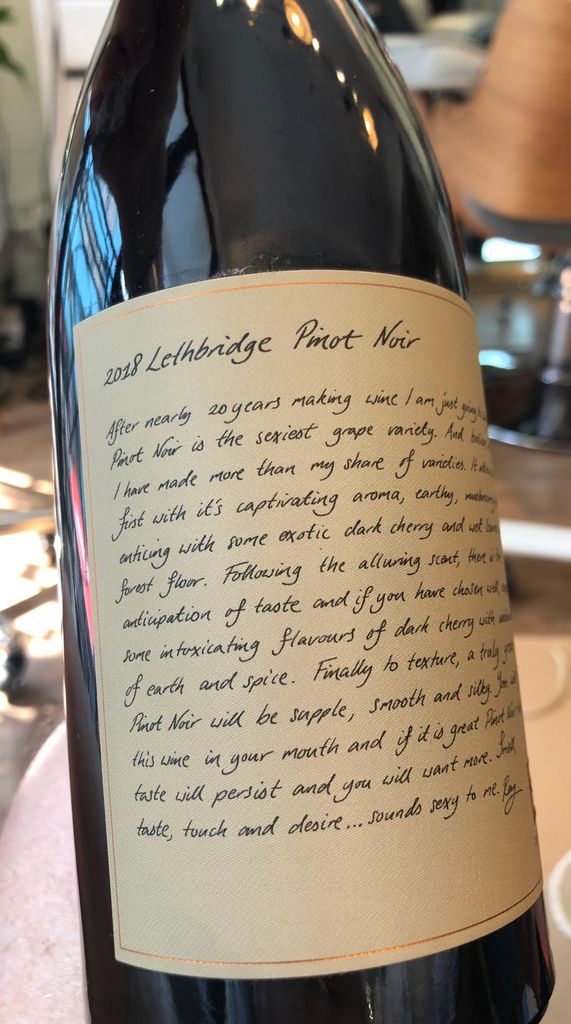 2018 Lethbridge Pinot Noir
After nearly 20 years making wine I am just going
Pinot Noir is the sexiest grape variety. And
I have made more than my share of varieties. It
first with it's captivating aroma, earthy,
enticing with some exotic dark cherry and wet
forest floor. Following the alluring scent, there is the
anticipation of taste and if you have chosen well,
some intoxicating flavours of dark cherry with
of earth and spice. Finally to texture, a truly
Pinot Noir will be supple, smooth and silky. You
this wine in your mouth and if it is great Pinot
taste will persist and you will want more. Smell,
taste, touch and desire... sounds sexy to me. Ray